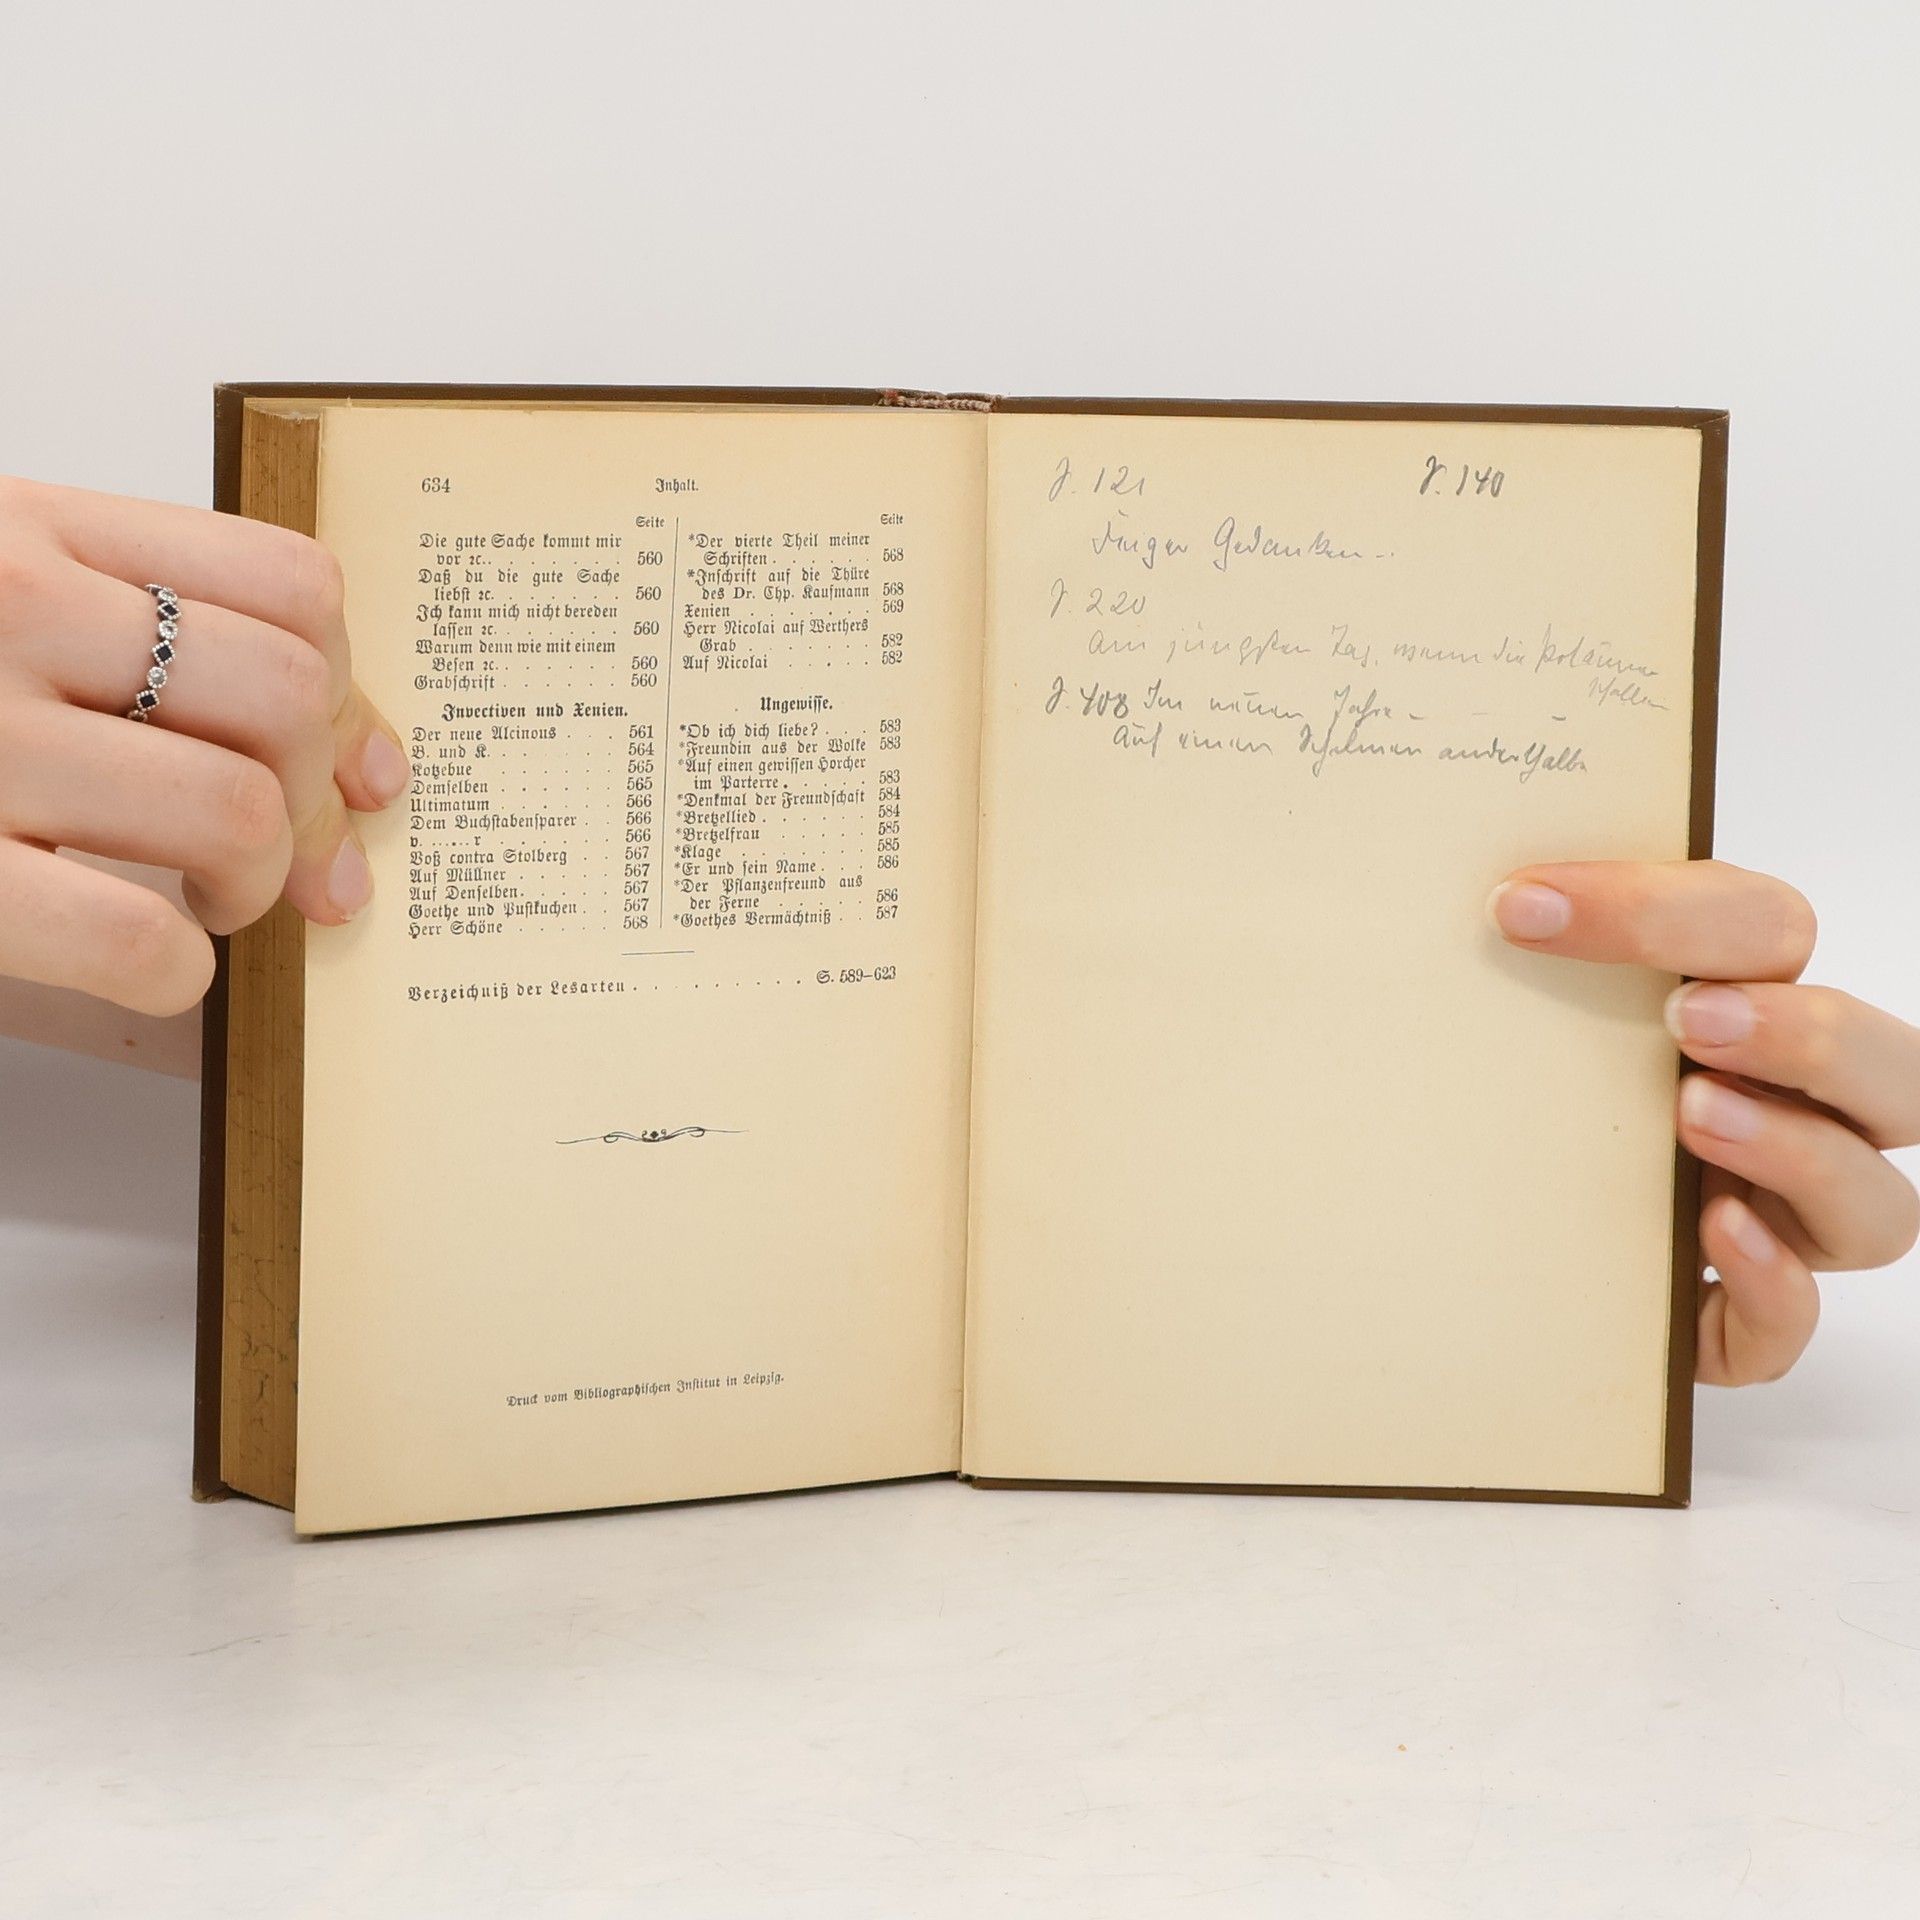 634
Inhalt.
Seite
Die gute Sache kommt mir
vor ꝛc. . . . . . . . 560
Daß du die gute Sache
liebst ꝛc. . . . . . . 560
Ich kann mich nicht bereden
lassen ꝛc. . . . . . . 560
Warum denn wie mit einem
Besen ꝛc. . . . . . . 560
Grabschrift . . . . . . 560
Invectiven und Xenien.
Der neue Alcinous . . . 561
B. und K. . . . . . . 564
Kotzebue . . . . . . 565
Demselben . . . . . . 565
Ultimatum . . . . . . 566
Dem Buchstabensparer . . 566
v. ...... r . . . . . . 566
Voß contra Stolberg . . 567
Auf Müllner . . . . . 567
Auf Denselben. . . . . 567
Goethe und Pustkuchen . . 567
Herr Schöne . . . . . 568
Seite
*Der vierte Theil meiner
Schriften . . . . . . 568
*Inschrift auf die Thüre
des Dr. Chp. Kaufmann 568
Xenien . . . . . . . 569
Herr Nicolai auf Werthers
Grab . . . . . . . 582
Auf Nicolai . . . . . 582
Ungewisse.
*Ob ich dich liebe? . . . 583
*Freundin aus der Wolke 583
*Auf einen gewissen Horcher
im Parterre . . . . . 583
*Denkmal der Freundschaft 584
*Bretzellied . . . . . . 584
*Bretzelfrau . . . . . 585
*Klage . . . . . . . 585
*Er und sein Name . . . 586
*Der Pflanzenfreund aus
der Ferne . . . . . 586
*Goethes Vermächtniß . . 587
Verzeichniß der Lesarten . . . . . . . . . S. 589–623
Druck vom Bibliographischen Institut in Leipzig.
S. 121
S. 140
Feiger Gedanken -..
S. 220
Am jüngsten Tag, wenn die Posaunen
schallen
S. 408 Im neuen Jahre - - -
Auf einen Schelmen anderthalbe